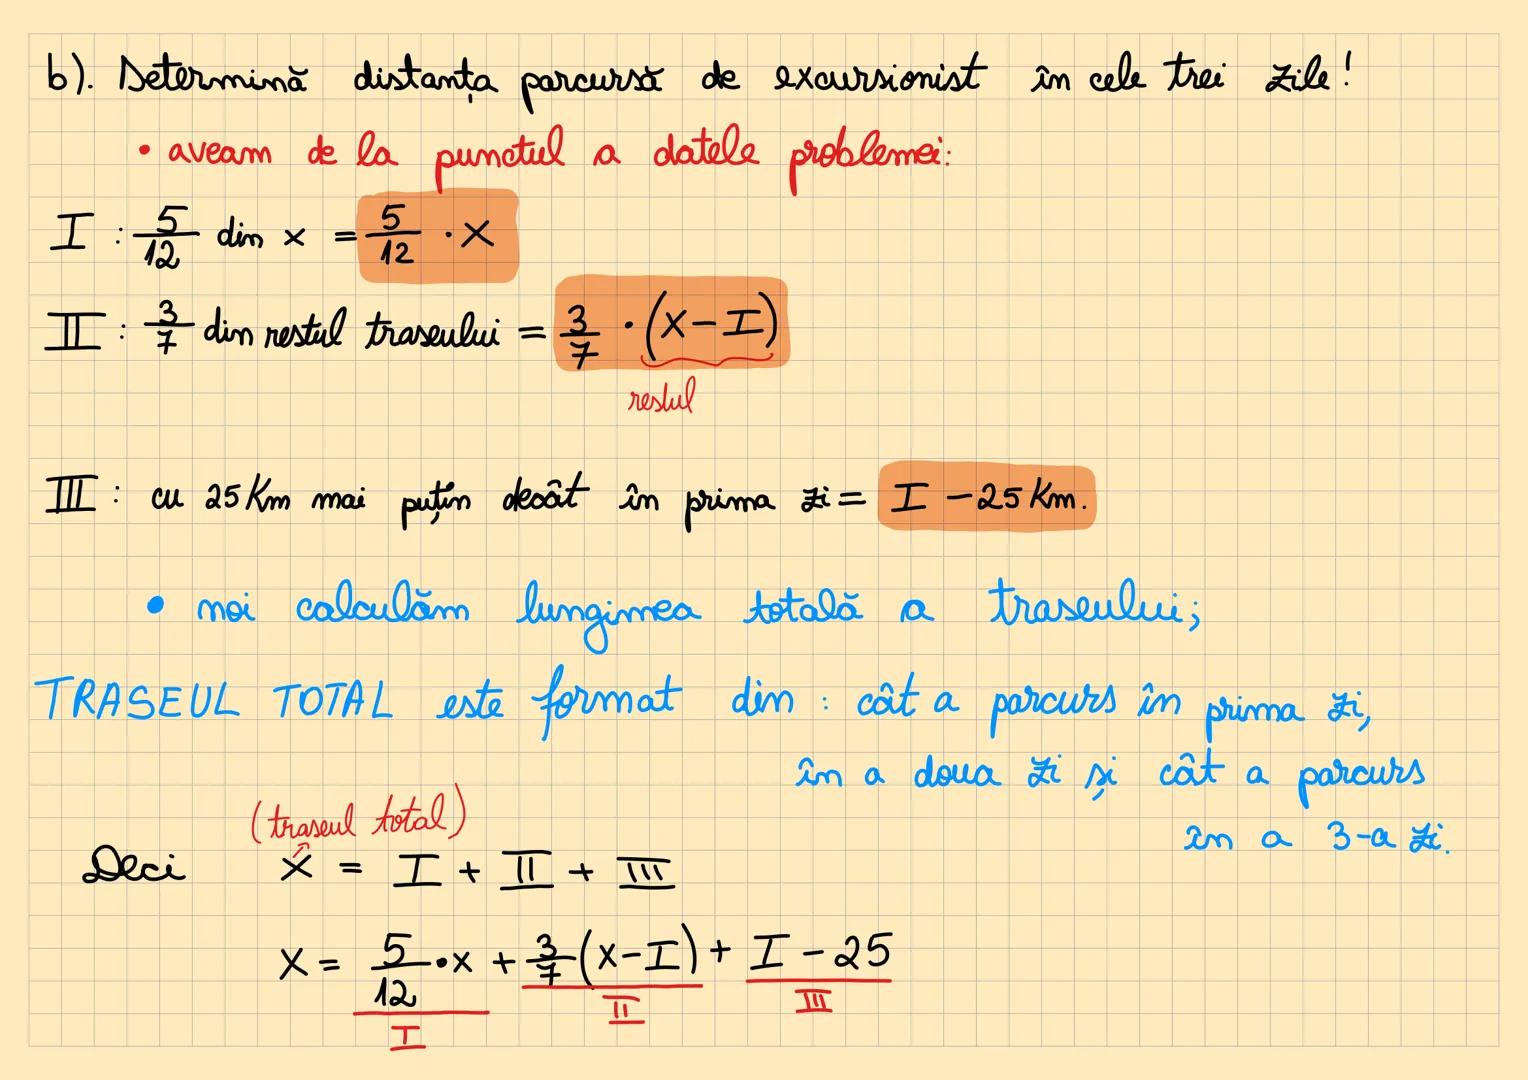 b). Determină distanța parcursă de excursionist în cele trei zile!
• aveam de la punctul a datele problemei:
I : 5/12 din x = 5/12 · x
II : 3/7 din restul traseului = 3/7 · (x - I)
restul
III : cu 25 Km mai puțin decât în prima zi = I - 25 Km.
• noi calculăm lungimea totală a traseului;
TRASEUL TOTAL este format din : cât a parcurs în prima zi,
în a doua zi și cât a parcurs
în a 3-a zi.
(traseul total)
Deci x = I + II + III
x = 5/12 · x + 3/7 (x - I) + I - 25
I II III